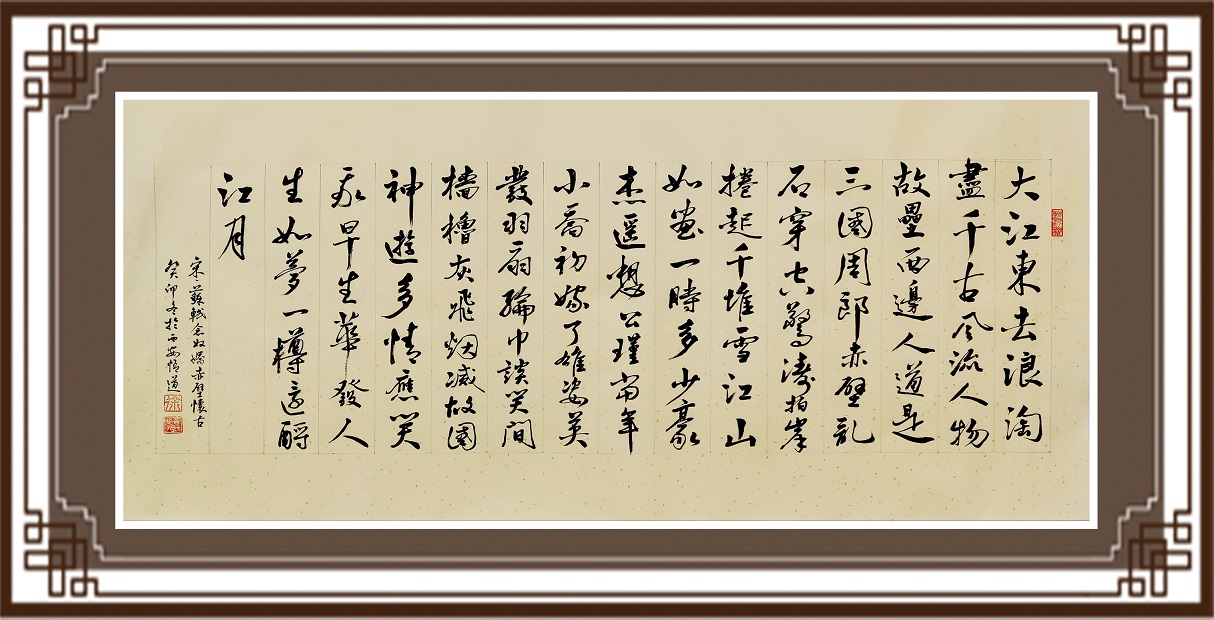 大江東去浪淘
盡千古风流人物
故壘西邊人道是
三國周郎赤壁亂
石穿空驚濤拍岸
捲起千堆雪江山
如畫一時多少豪
杰遥想公瑾當年
小喬初嫁了雄姿英
發羽扇綸巾談笑間
檣櫓灰飛烟滅故國
神遊多情應笑
我早生華發人
生如夢一樽還酹
江月
宋蘇軾念奴嬌赤壁懷古
癸卯冬於西安悟道